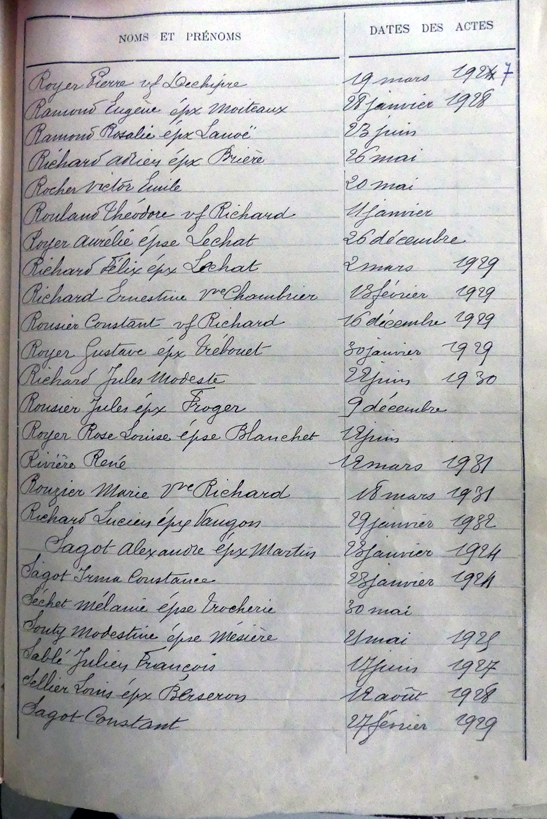 NOMS ET PRÉNOMS DATES DES ACTES
Royer Pierre vf Dechipre 19 mars 1927
Ramond Eugène épx Moiteaux 28 janvier 1928
Ramond Rosalie épx Lanoë 23 juin
Richard Adrien épx Brière 26 mai
Rocher Victor Emile 20 mai
Rouland Théodore vf Richard 11 janvier
Royer Aurélie épse Lechat 26 décembre
Richard Félix épx Lechat 2 mars 1929
Richard Ernestine Vve Chambrier 13 février 1929
Rousier Constant vf Richard 16 décembre 1929
Royer Gustave épx Trébouet 30 janvier 1929
Richard Jules Modeste juin 1930
Rousier Jules épx Froger 9 décembre
Royer Rose Louise épse Blanchet 12 juin
Rivière René 12 mars 1931
Rouzier Marie Vve Richard 18 mars 1931
Richard Lucien épx Vaugon 29 janvier 1932
Sagot Alexandre épx Martin 23 janvier 1924
Sagot Irma Constance 23 janvier 1924
Séchet Mélanie épse Trocherie 30 mai
Souty Modestine épse Mésière 21 mai 1925
Sablé Julien François 17 juin 1927
Sellier Louis épx Berseron 12 août 1928
Sagot Constant 27 février 1929